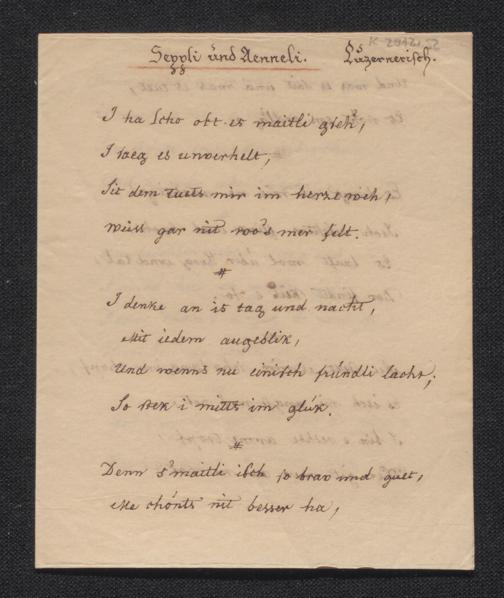 Seppli und Aenneli. Luzernerisch.
I ha scho oft es maitli gseh,
I saeg es unverhelt,
Sit dem tuets mir im herze weh,
weiss gar nit wo's mer felt.
#
I denke an is tag und nacht,
Mit iedem augeblik,
Und wenns nu einisch fründli lacht,
So stek i mitts im glük.
#
Denn s'maitli isch so brav und guet,
Me chönts nit besser ha,